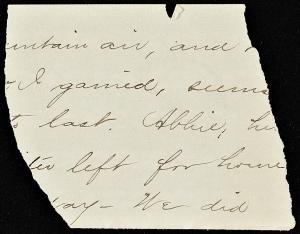 untain air, and
I gained, seems
last. Abbie, he
left for home
ay - We did